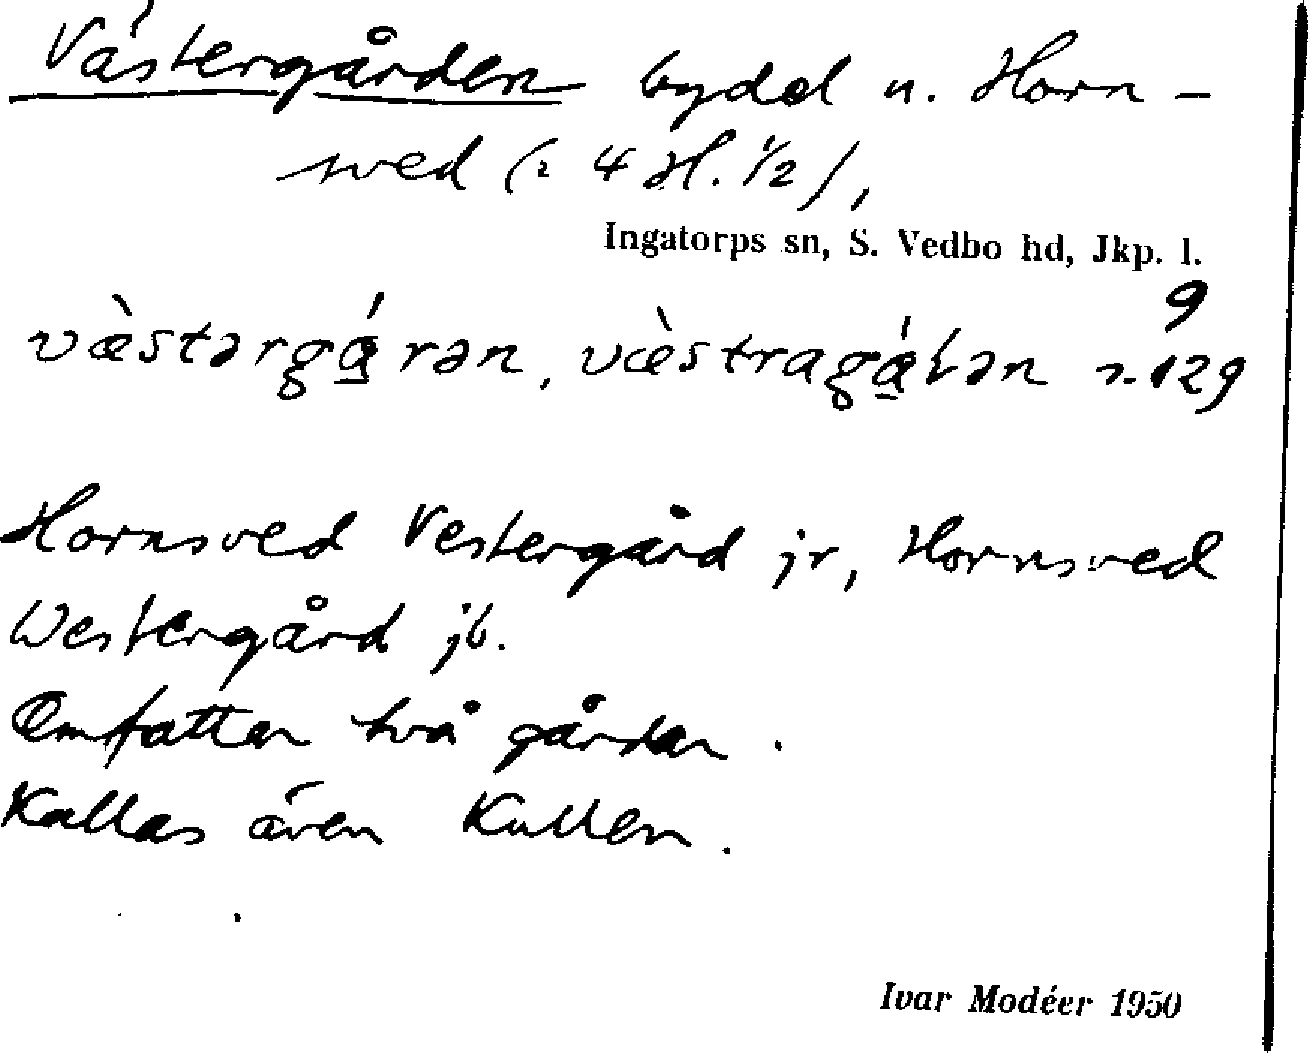 Västergården bydel u. Horn-
sved (i 4 H. 1/2),
Ingatorps sn, S. Vedbo hd, Jkp. l.
9
væ̀stərgá̱rən, væ̀stragá̱tən s. 129
Hornsved Vestergård jr, Hornsved
Westergård jb.
Omfattar två gårdar.
Kallas även Kullen.
Ivar Modéer 1950